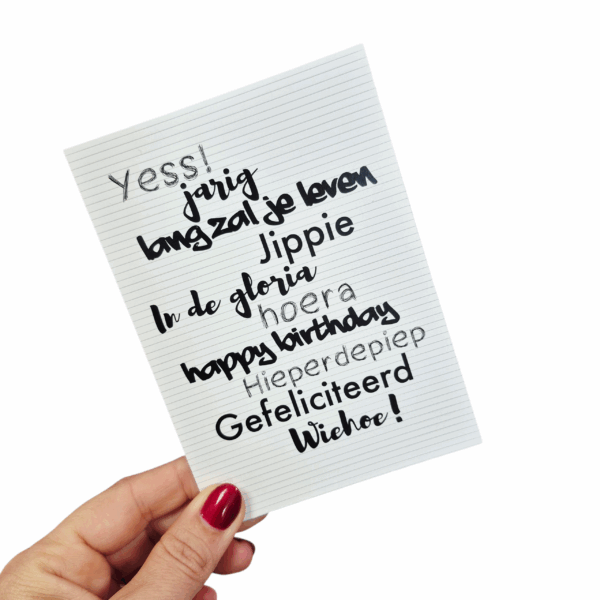 Yess!
jarig
lang zal je leven
Jippie
In de gloria
hoera
happy birthday
Hieperdepiep
Gefeliciteerd
Wiehoe!